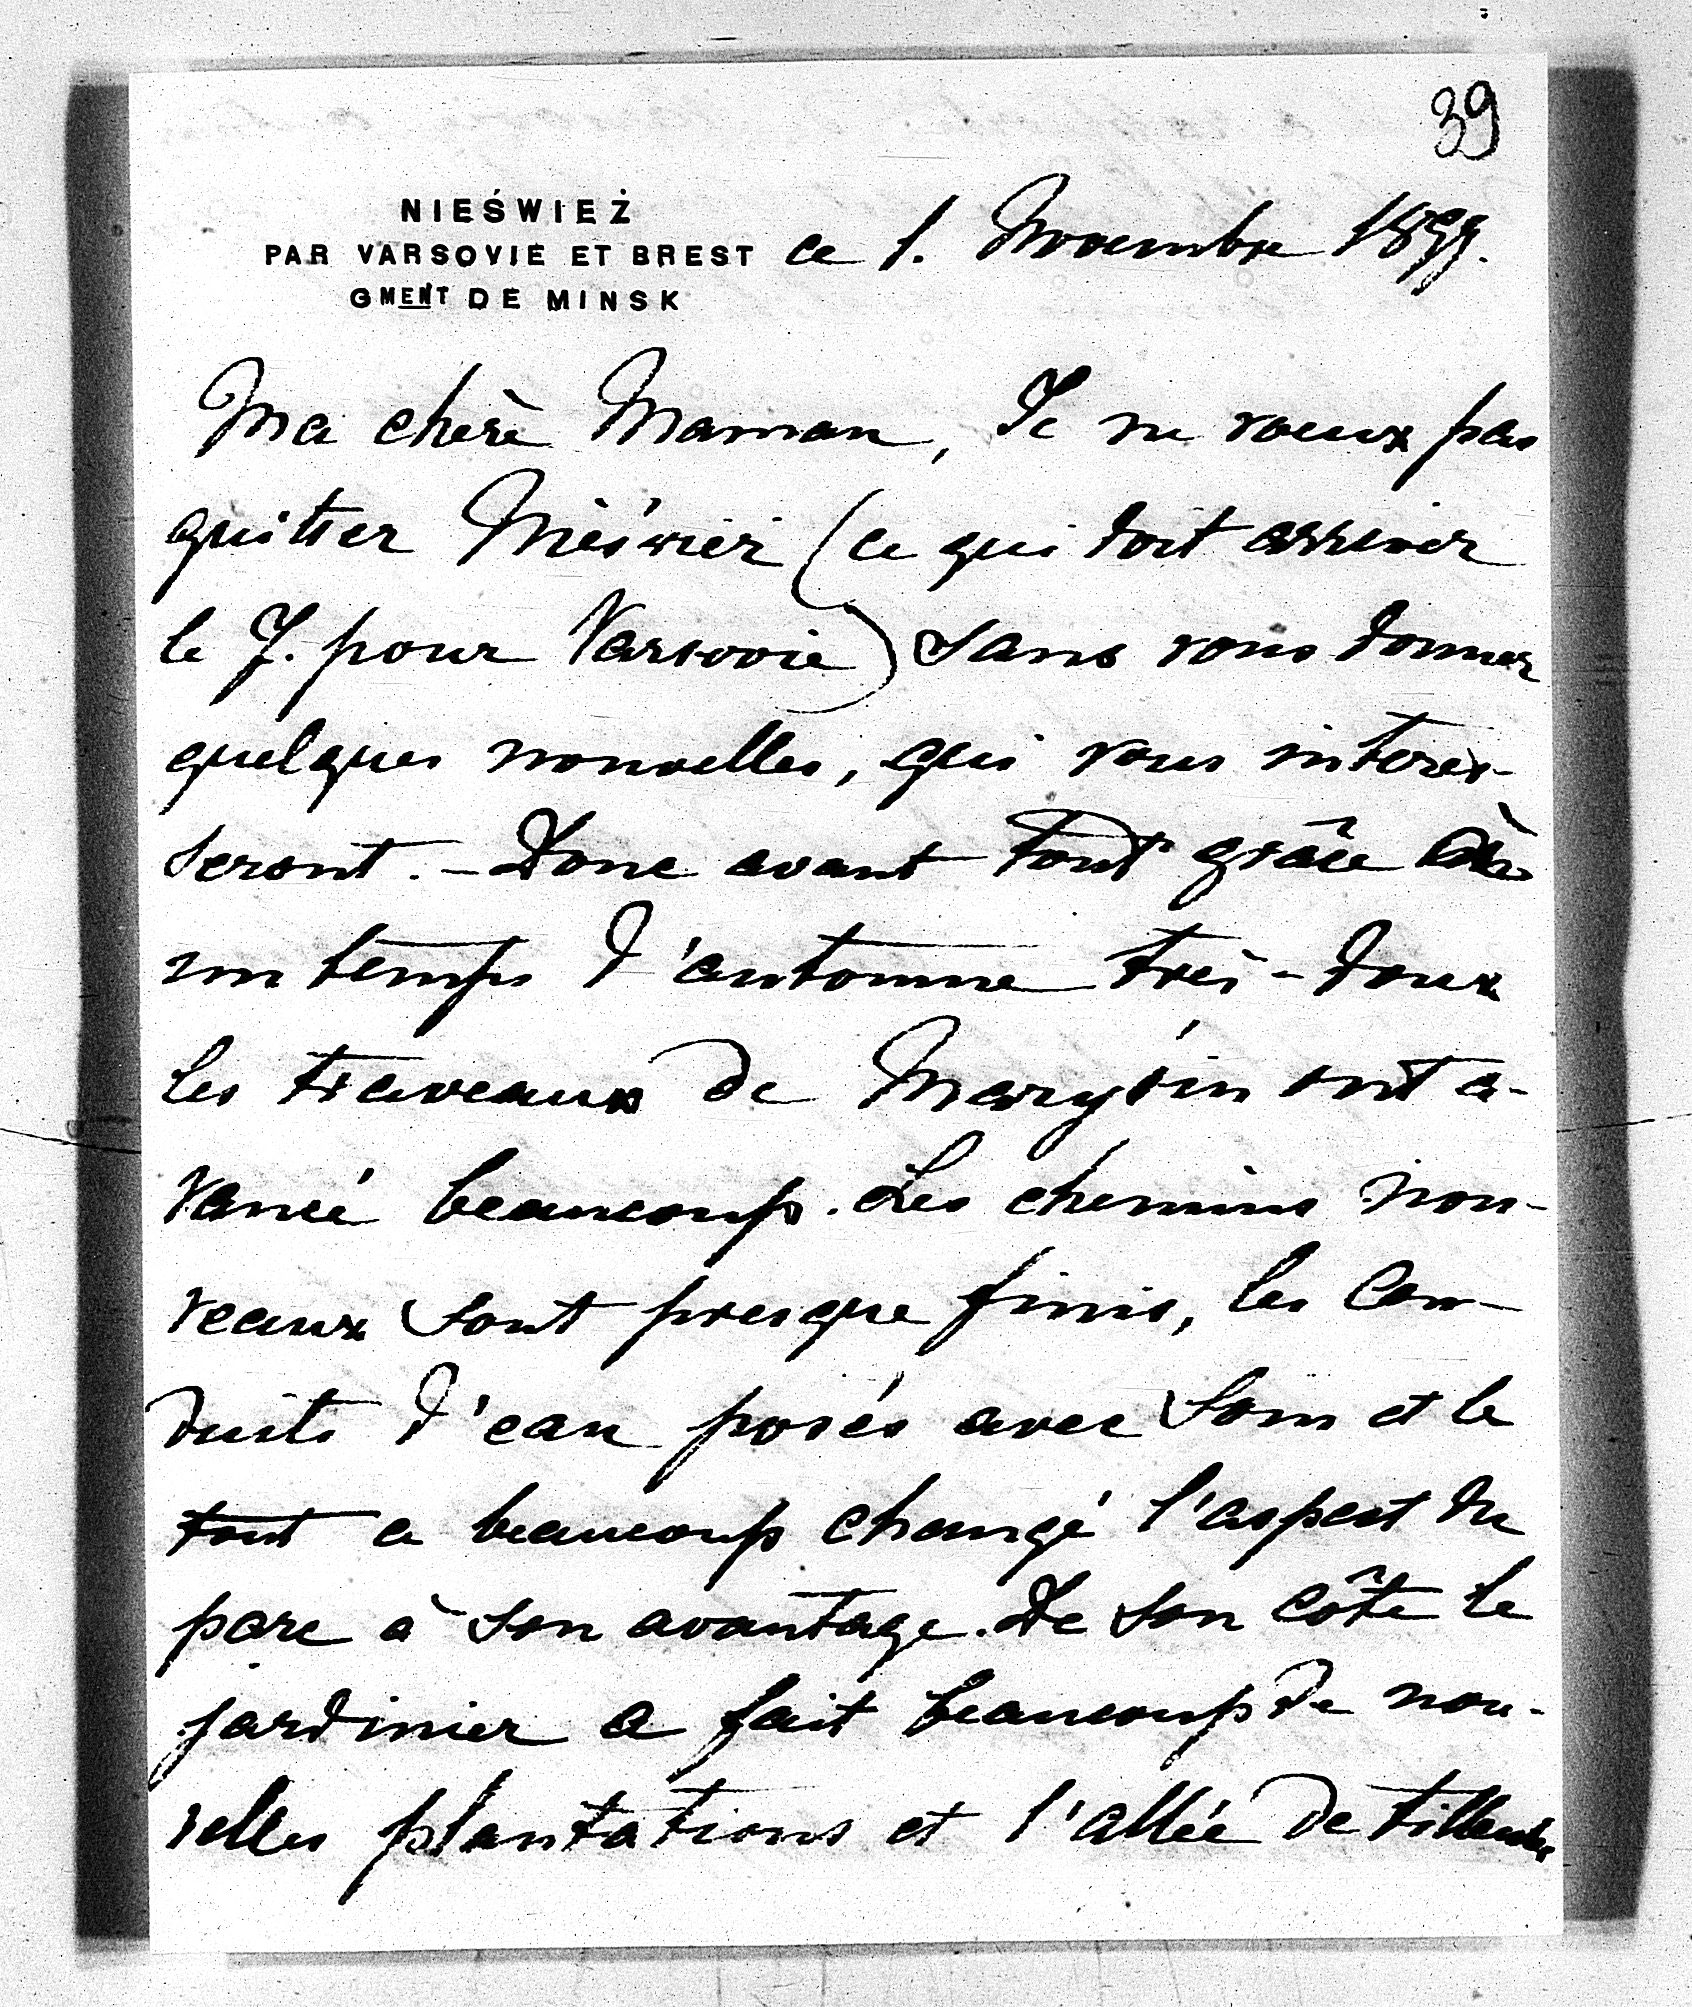 39
NIEŚWIEŻ
PAR VARSOVIE ET BREST ce 1. Novembre 1899.
GMENT DE MINSK
Ma chère Maman, Je ne veux pas
quitter Nieśwież (ce qui doit arriver
le 7. pour Varsovie) sans vous donner
quelques nouvelles, qui vous intéres-
seront. - Donc avant tout grâce à
un temps d'automne très-doux
les traveaux de Marysin ont a-
vancé beaucoup. Les chemins nou-
veaux sont presque finis, les con-
duits d'eau posés avec soin et le
tout a beaucoup changé l'aspect du
parc à son avantage. De son côté le
jardinier a fait beaucoup de nou-
velles plantations et l'allée de tilleuls